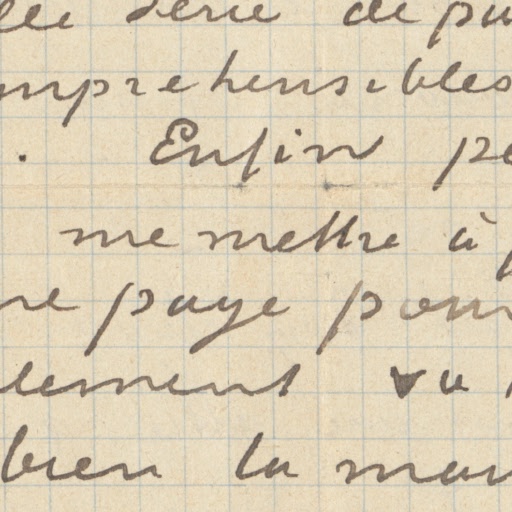 lle série de pu
mprehensibles
. Enfin pe
me mettre à p
re page pour
lement va
bien la mar